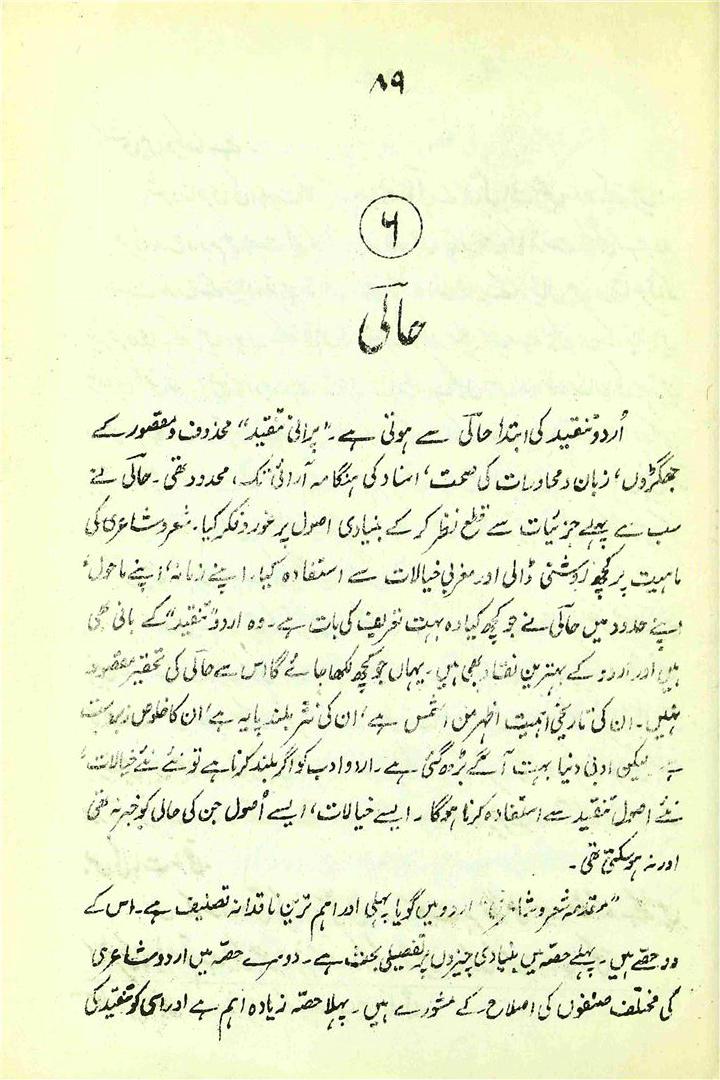 ۸۹
۶
حالی
اُردو تنقید کی ابتدا حالی سے ہوتی ہے۔ "پرانی تنقید" محذوف و مقصور کے
جھگڑوں، زبان و محاورات کی صحت، اسناد کی ہنگامہ آرائی تک، محدود تھی۔ حالی نے
سب سے پہلے جزئیات سے قطع نظر کر کے بنیادی اصول پر غور و فکر کیا۔ شعر و شاعری کی
ماہیت پر کچھ روشنی ڈالی اور مغربی خیالات سے استفادہ کیا۔ اپنے زمانہ، اپنے ماحول،
اپنے حدود میں حالی نے جو کچھ کیا وہ بہت تعریف کی بات ہے۔ وہ اردو "تنقید" کے بانی بھی
ہیں اور اردو کے بہترین نقاد بھی ہیں۔ یہاں جو کچھ لکھا جائے گا اس سے حالی کی تحقیر مقصود
نہیں۔ ان کی تاریخی اہمیت اظہر من الشمس ہے، ان کی نثر بلند پایہ ہے، ان کا خلوص زبردست
ہے۔ لیکن ادبی دنیا بہت آگے بڑھ گئی ہے۔ اردو ادب کو اگر بلند کرنا ہے تو نئے نئے خیالات،
نئے اصول تنقید سے استفادہ کرنا ہوگا۔ ایسے خیالات، ایسے اُصول جن کی حالی کو خبر نہ تھی
اور نہ ہو سکتی تھی۔
"مقدمہ شعر و شاعری" اردو میں گویا پہلی اور اہم ترین ناقدانہ تصنیف ہے۔ اس کے
دو حصّے ہیں۔ پہلے حصّہ میں بنیادی چیزوں پر تفصیلی بحث ہے۔ دوسرے حصّہ میں اردو شاعری
کی مختلف صنفوں کی اصلاح کے مشورے ہیں۔ پہلا حصّہ زیادہ اہم ہے اور اسی کو تنقید کی